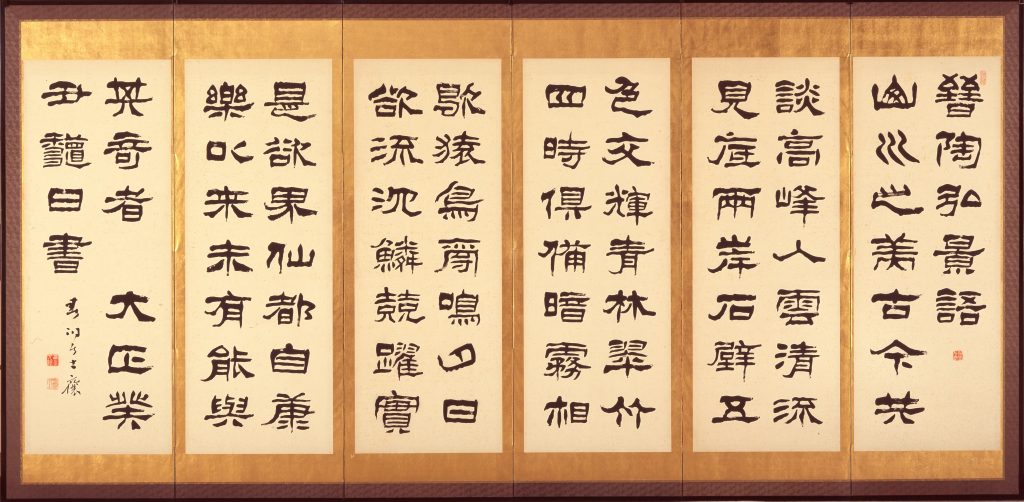 晉陶弘景語
山川之美古今共
談高峰入雲清流
見底兩岸石壁五
色交輝青林翠竹
四時俱備暗霧相
歇猿鳥爭鳴夕日
欲流沉鱗競躍實
是欲果仙都自康
樂以来未有能與
其奇者 大正癸
丑日書
春洞居士